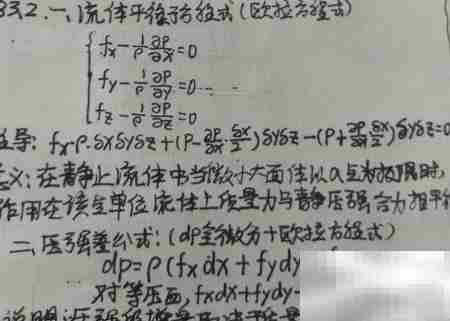 §3.2. 一、流体平衡方程式(欧拉方程式)
fx - 1/ρ ∂P/∂x = 0
fy - 1/ρ ∂P/∂y = 0
fz - 1/ρ ∂P/∂z = 0
导: fx·ρ·δxδyδz + (P - ∂P/∂x δx/2)δyδz - (P + ∂P/∂x δx/2)δyδz = 0
义: 在静止流体中当微小六面体以a点为极限时,
作用在该点单位流体上质量力与静压强合力相平
二、压强差公式: (dp全微分+欧拉方程式)
dp = ρ(fxdx + fydy
对等压面, fxdx + fydy
说明